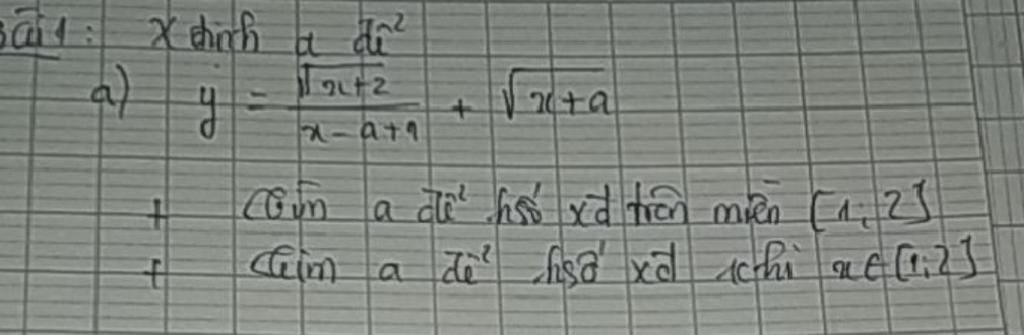 Bài 1: Xđịnh a để
a) y = \frac{\sqrt{x+2}}{x-a+1} + \sqrt{x+a}
+ Tìm a để hsố xđ trên miền [1; 2]
+ Tìm a để hsố xđ khi x ∈ [1; 2]